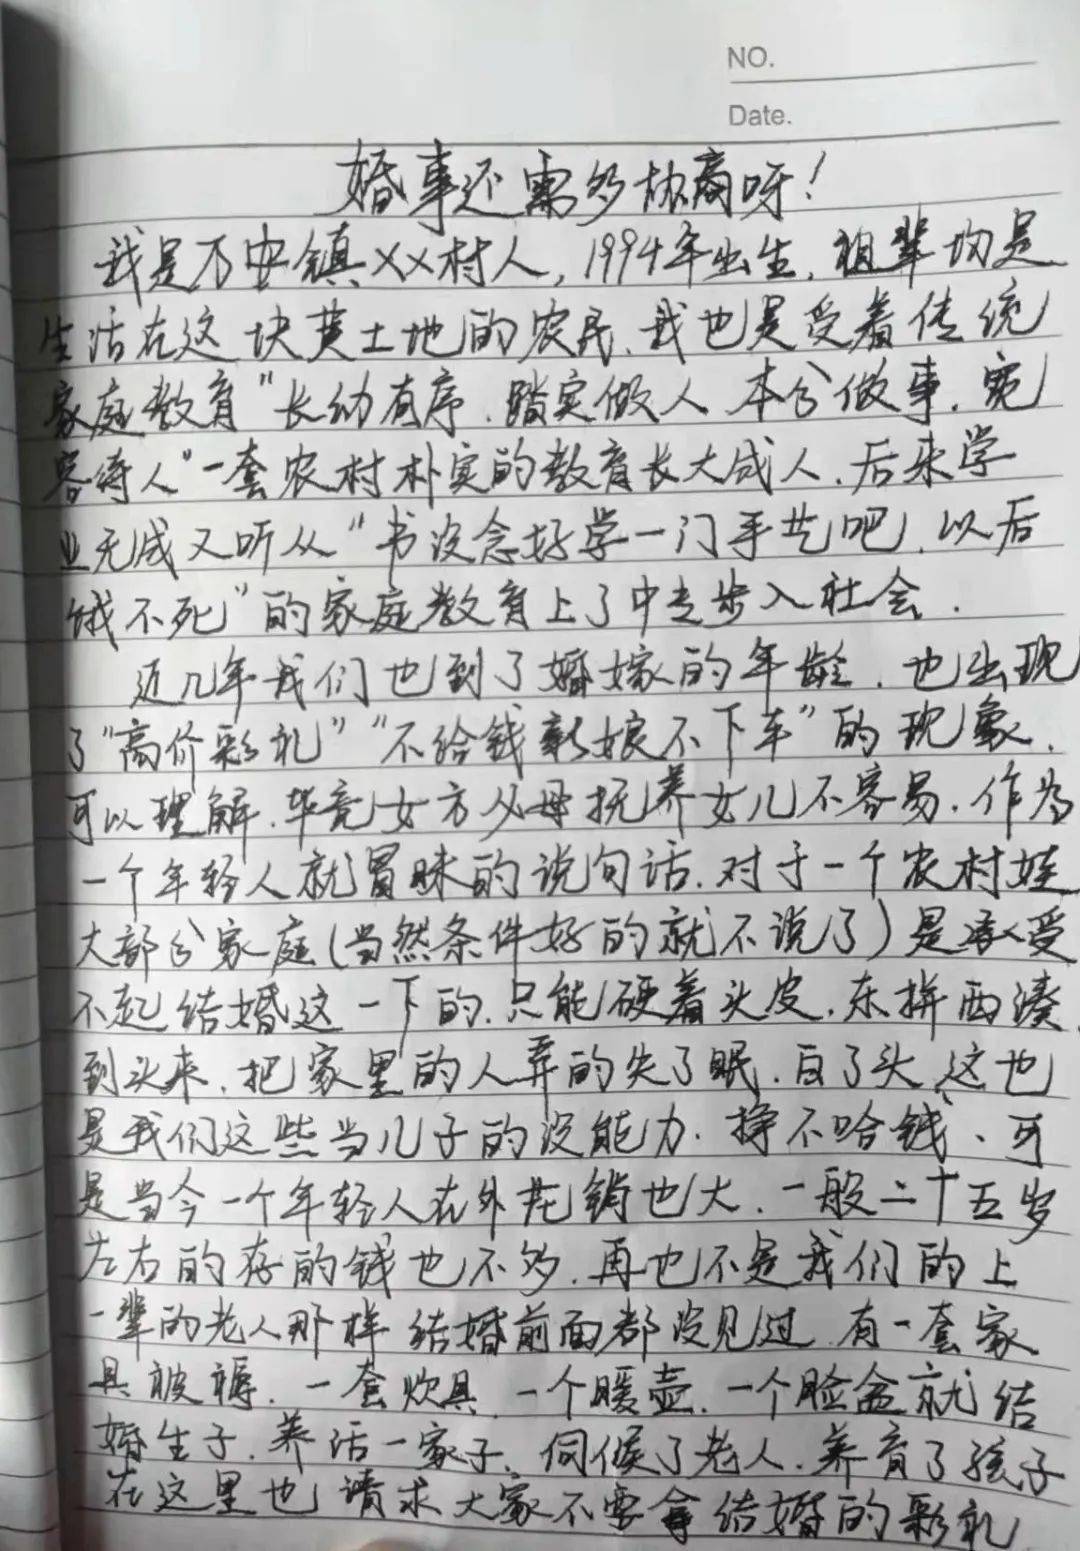 NO.
Date.
婚事还需多协商呀！
我是万安镇XX村人，1994年出生，祖辈均是
生活在这块黄土地的农民，我也是受着传统
家庭教育“长幼有序，踏实做人，本分做事，宽
容待人”一套农村朴实的教育长大成人，后来学
业无成又听从“书没念好学一门手艺吧，以后
饿不死”的家庭教育上了中专步入社会．
近几年我们也到了婚嫁的年龄，也出现
了“高价彩礼”“不给钱新娘不下车”的现象，
可以理解，毕竟女方父母抚养女儿不容易，作为
一个年轻人就冒昧的说句话，对于一个农村娃
大部分家庭（当然条件好的就不说了）是承受
不起结婚这一下的，只能硬着头皮，东拼西凑，
到头来，把家里的人弄的失了眠，白了头，这也
是我们这些当儿子的没能力，挣不哈钱，可
是当今一个年轻人在外花销也大，一般二十五岁
左右的存的钱也不多，再也不是我们的上
一辈的老人那样结婚前面都没见过，有一套家
具被褥，一套炊具，一个暖壶，一个脸盆就结
婚生子，养活一家子，伺候了老人，养育了孩子
在这里也请求大家不要拿结婚的彩礼